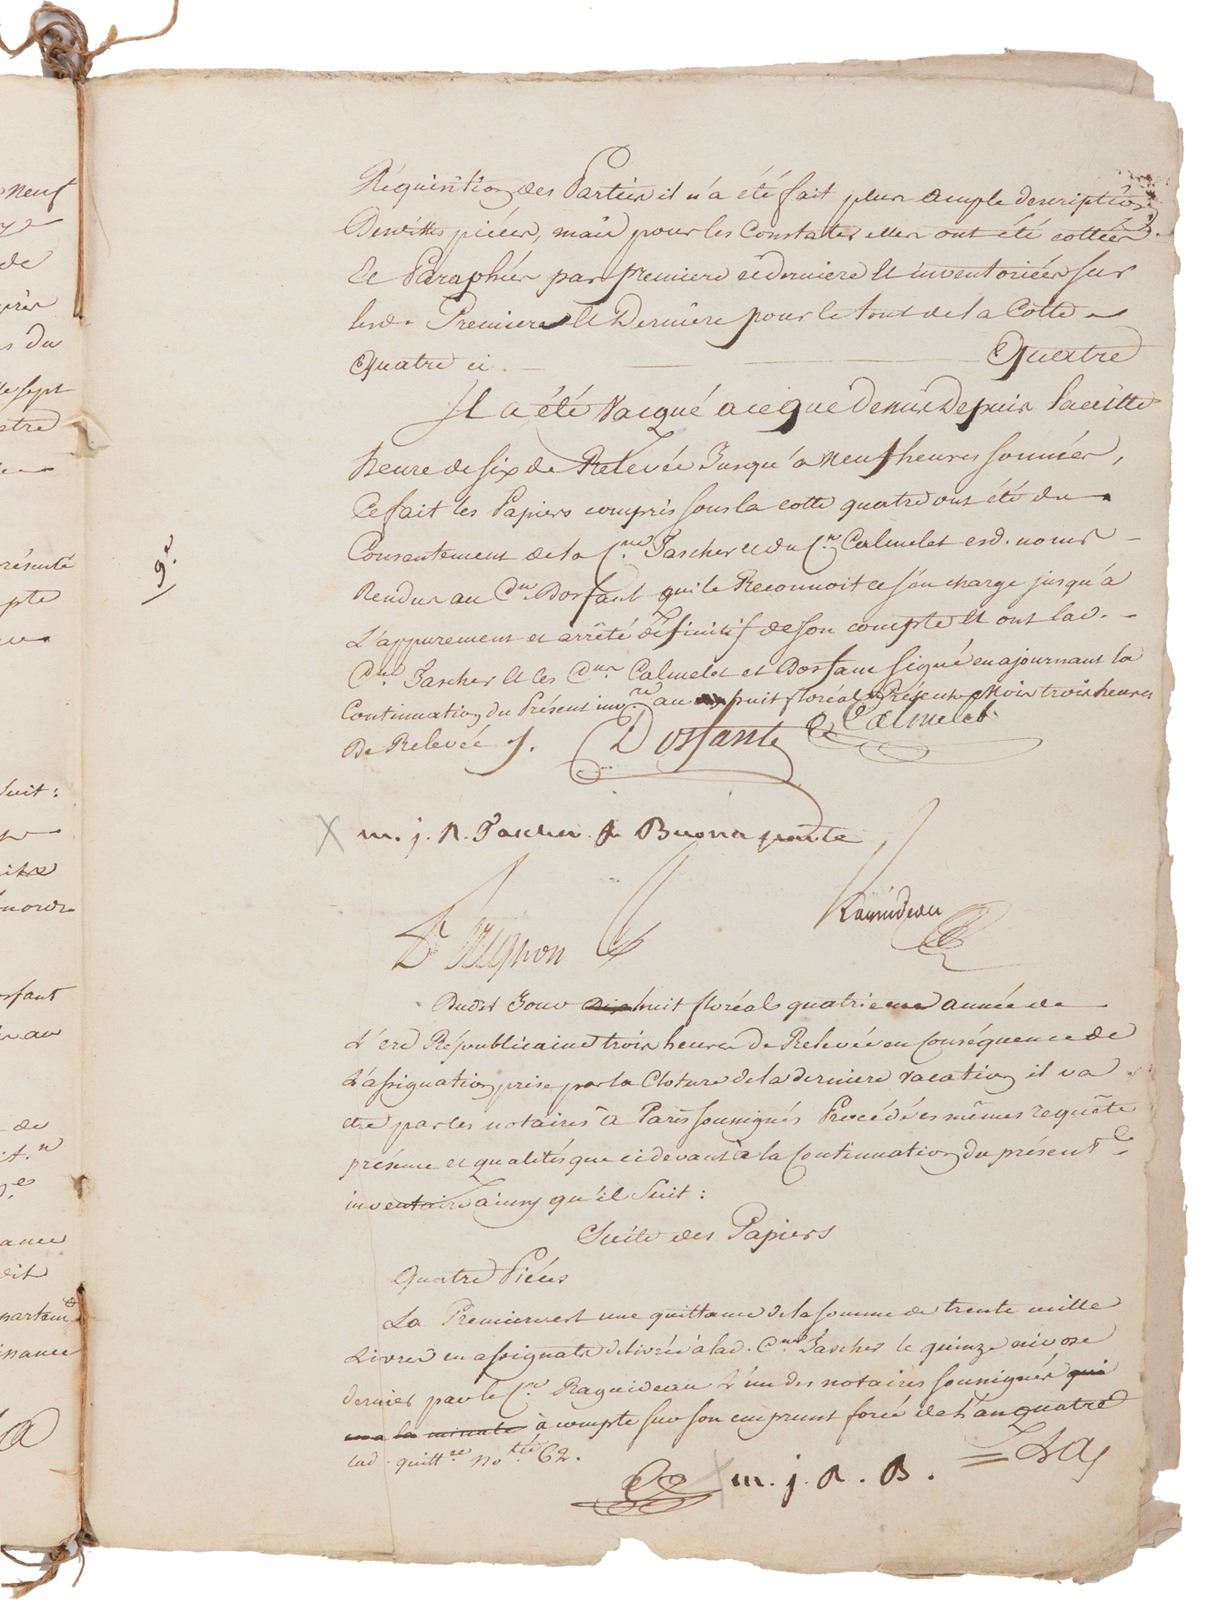 neuf
de
du
sept
présenté
pte
suit :
de
ance
dit
partem
inance
Réquisition des Parties il n'a été fait plus ample description
Desdittes pièces, mais pour les Constater elles ont été cottées
et Paraphées par premiere et derniere et inventoriées sur
lesd. Premiere et Derniere pour le tout de la Cotte
Quatre ci Quatre
Il a été Vacqué a ce que dessus Depuis Laditte
heure de six de Relevée Jusqu'à Neuf heures sonnées,
Ce fait les Papiers compris sous la cotte quatre ont été du
Consentement de la Cne. Tascher et du Cn. Calmelet esd. noms
Rendus au Cen. Dosfant qui le Reconnoit et s'en charge jusqu'à
L'appurement et arrêté définitif de son compte et ont lad.
Cne. Tascher et les Cens. Calmelet et Dosfant signé en ajournant la
Continuation du Présent invre. au huit floréal Présent Mois trois heures
De Relevée
9.e
Dosfant Calmelet
m. j. R. Tascher Buonaparte
Trignon
Raguideau
Dudit Jour huit floréal quatrieme année de
L'ere Républicaine trois heures de Relevée en conséquence de
L'assignation prise par la Cloture de la derniere vacation il va
être par les notaires à Paris soussignés Procédé es mêmes requête
présence et qualités que ci devant à la Continuation du présent
inventaire ainsy qu'il suit :
Suite des Papiers
Quatre Pièces
La Premiere est une quittance de la somme de trente mille
Livres en assignats délivrée à lad. Cne. Tascher le quinze nivose
dernier par le Cn. Raguideau L'un des notaires soussignés qui
en a la minute à compte sur son emprunt forcé de l'an quatre
lad. quittce. No. 62.
m. j. R. B.